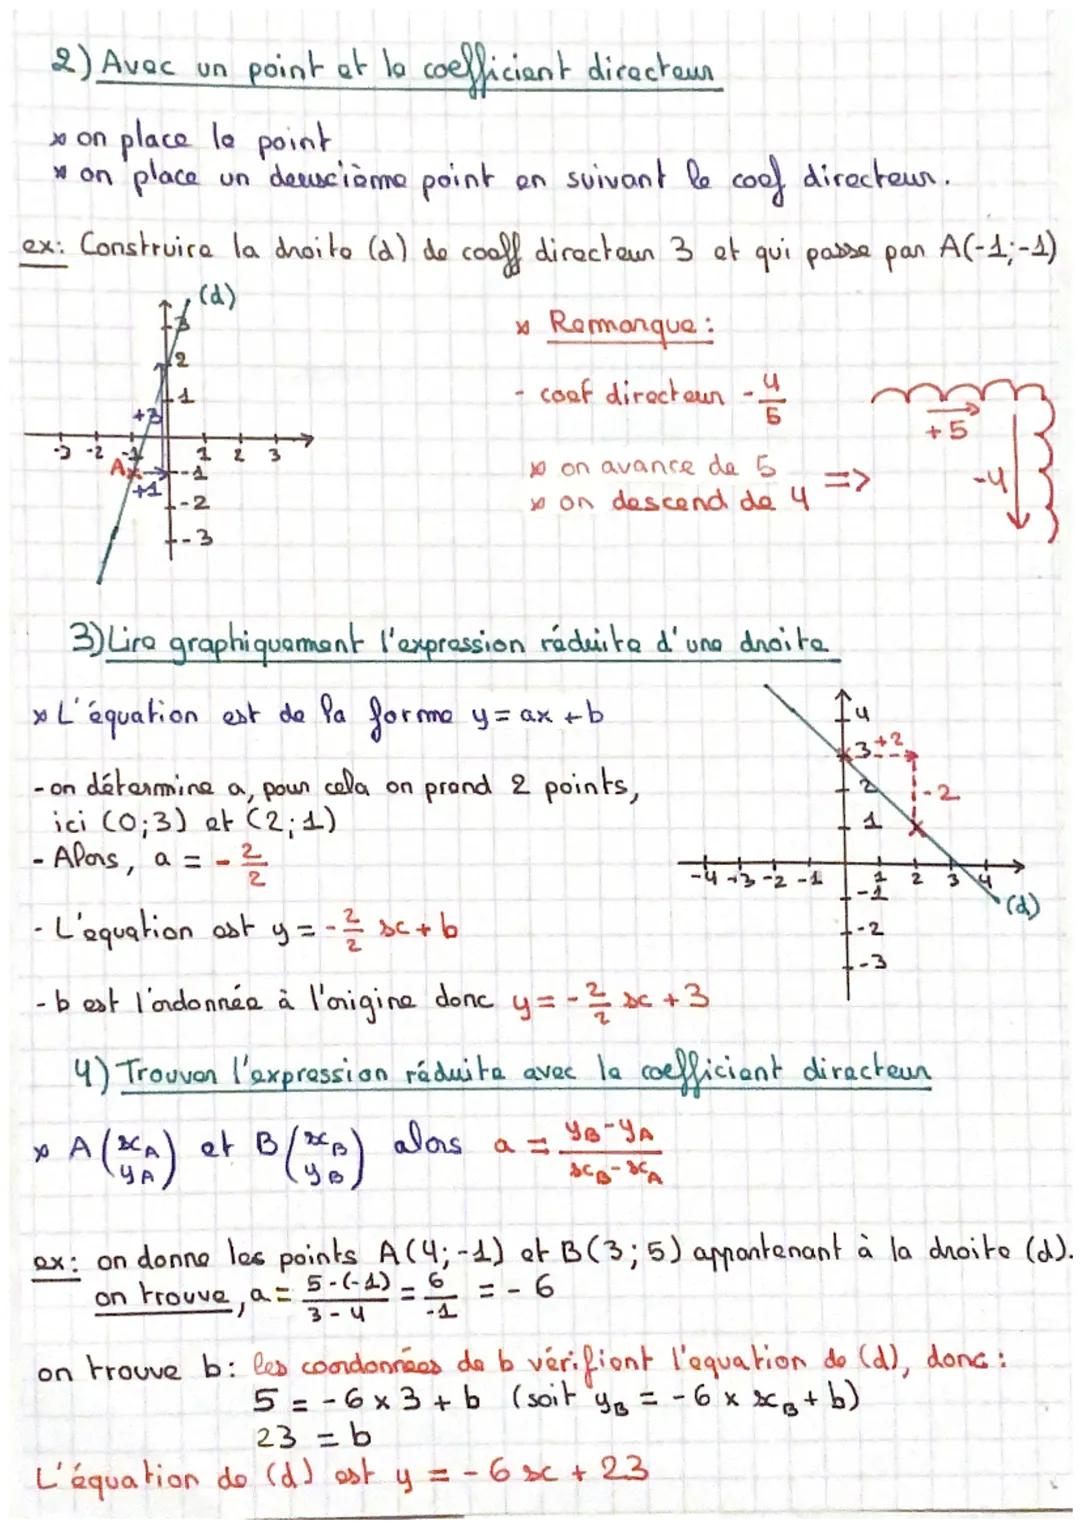 2) Avec un point et le coefficient directeur
× on place le point
× on place un deuxième point en suivant le coef directeur.
ex: Construire la droite (d) de coeff directeur 3 et qui passe par A(-1;-1)
(d)
3
2
1
+3
-3 -2 -1 1 2 3
A
+1
-1
-2
-3
× Remarque :
- coef directeur -4/5
× on avance de 5
× on descend de 4
=>
+5
-4
3) Lire graphiquement l'expression réduite d'une droite
× L'équation est de la forme y = ax + b
- on détermine a, pour cela on prend 2 points,
ici (0;3) et (2;1)
- Alors, a = - 2/2
- L'equation est y = - 2/2 x + b
- b est l'ordonnée à l'origine donc y = - 2/2 x + 3
4
3 +2
2 -2
1
-4 -3 -2 -1 1 2 3 4
-1
(d)
-2
-3
4) Trouver l'expression réduite avec le coefficient directeur
× A (xA yA) et B (xB yB) alors a = yB - yA / xB - xA
ex: on donne les points A(4;-1) et B(3;5) appartenant à la droite (d).
on trouve, a = 5-(-1) / 3-4 = 6/-1 = - 6
on trouve b: les coordonnées de b vérifient l'equation de (d), donc :
5 = -6 × 3 + b (soit yB = -6 × xB + b)
23 = b
L'équation de (d) est y = - 6 x + 23